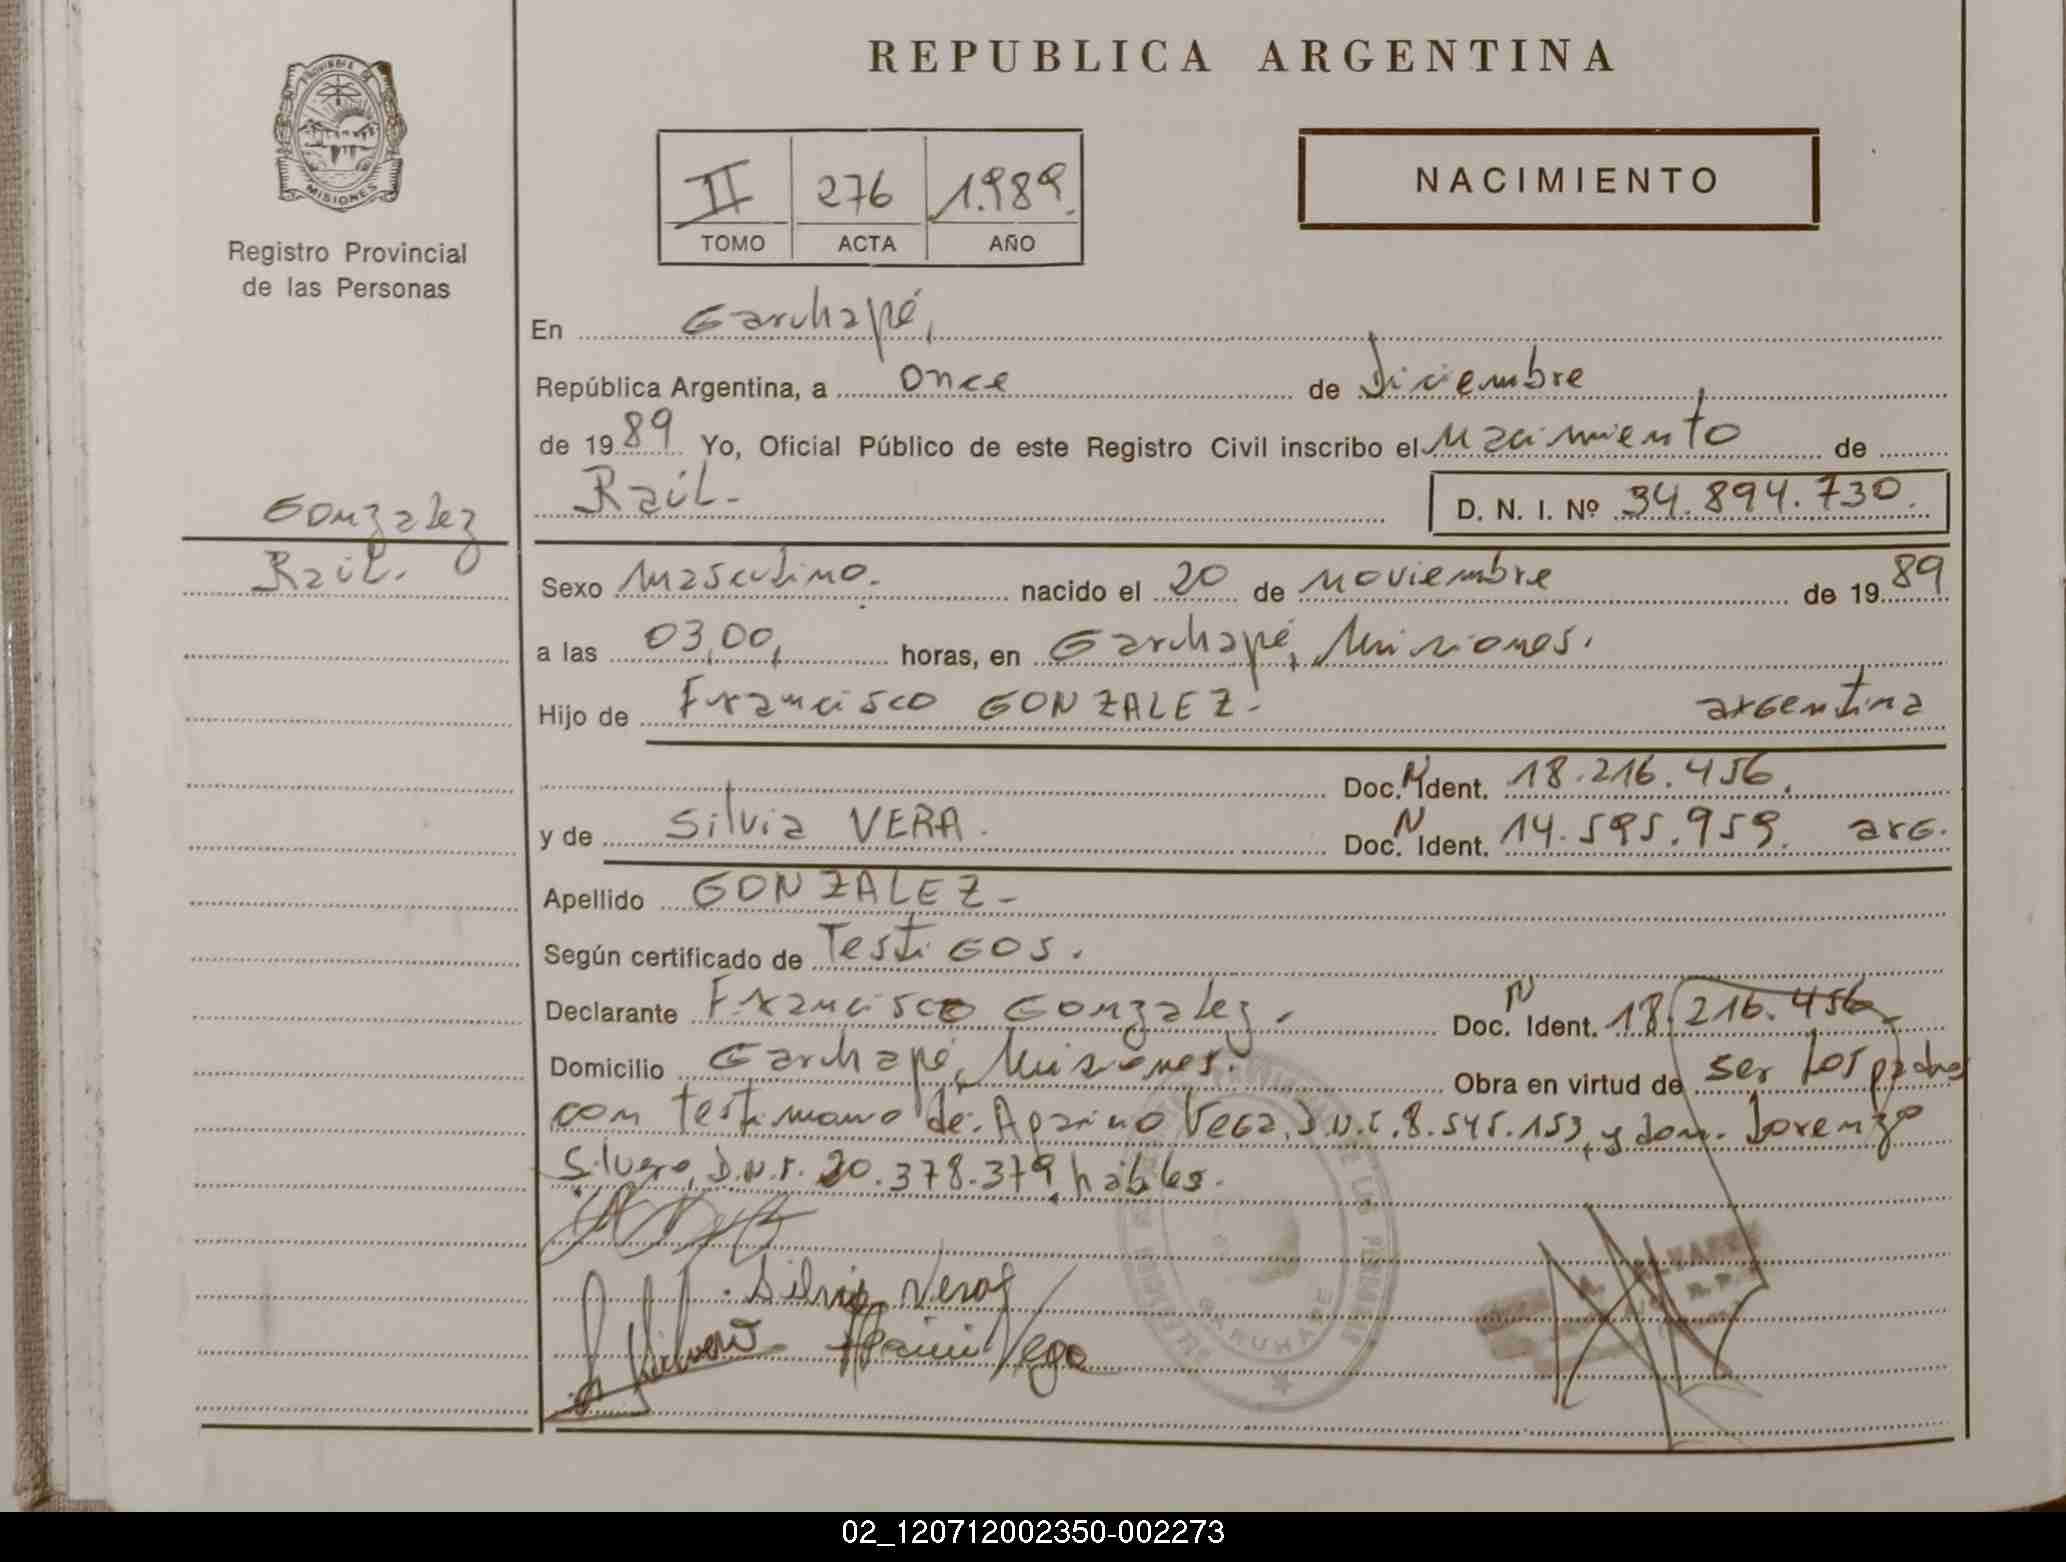 REPUBLICA ARGENTINA
PROVINCIA DE
MISIONES
Registro Provincial
de las Personas
II 276 1.989.
TOMO ACTA AÑO
NACIMIENTO
En Garuhapé,
República Argentina, a once de Diciembre
de 1989 Yo, Oficial Público de este Registro Civil inscribo el Nacimiento de
Raúl.-
D. N. I. Nº 34.894.730.
Gonzalez
Raúl.
Sexo Masculino. nacido el 20 de noviembre de 1989
a las 03,00, horas, en Garuhapé, Misiones.
Hijo de Francisco GONZALEZ.- argentina
Doc. N Ident. 18.216.456.
y de Silvia VERA. Doc. N Ident. 14.595.959. arg.
Apellido GONZALEZ.-
Según certificado de Testigos.
Declarante Francisco Gonzalez.- Doc. N Ident. 18.216.456
Domicilio Garuhapé, Misiones. Obra en virtud de ser los padres
con testimonio de: Vega, D.N.I. 8.545.153, y don. Lorenzo
Silvero, D.N.I. 20.378.379, hábiles.
Silvia Vera
Silvero Vega
GARUHAPE
02_120712002350-002273